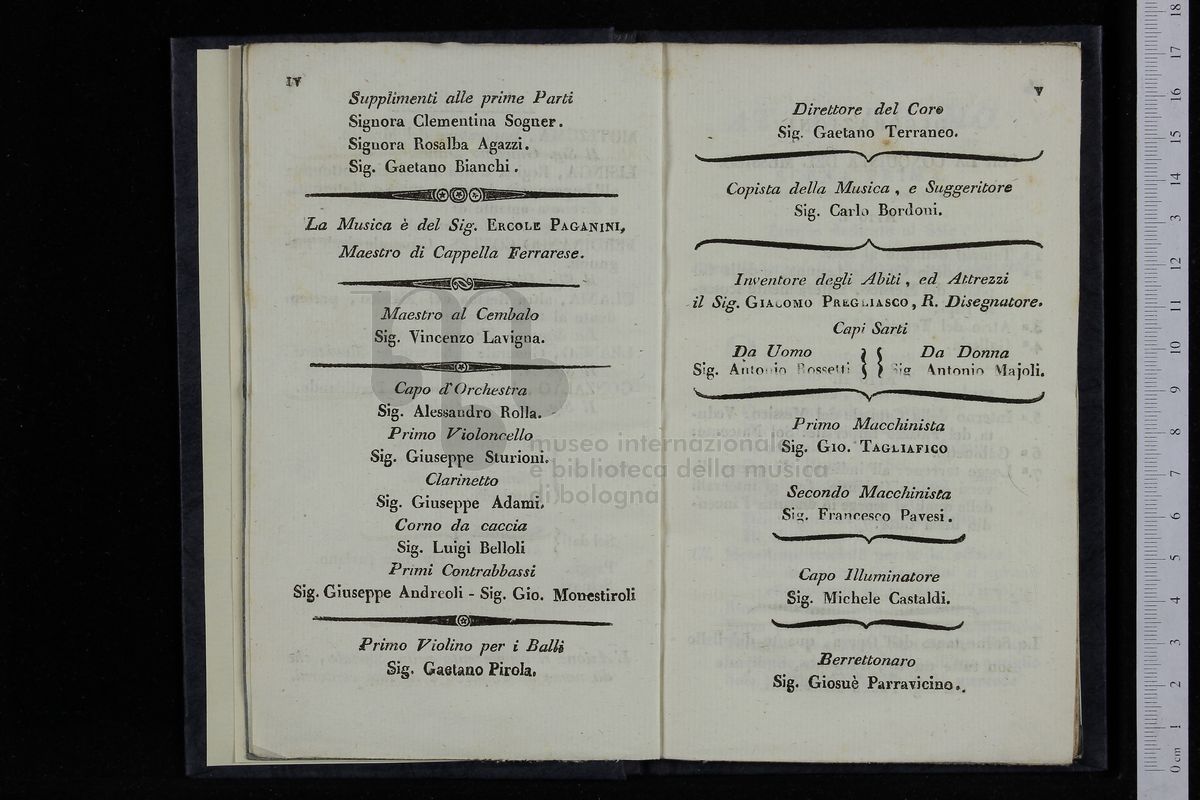 IV
Supplimenti alle prime Parti
Signora Clementina Sogner.
Signora Rosalba Agazzi.
Sig. Gaetano Bianchi.
La Musica è del Sig. ERCOLE PAGANINI,
Maestro di Cappella Ferrarese.
Maestro al Cembalo
Sig. Vincenzo Lavigna.
Capo d'Orchestra
Sig. Alessandro Rolla.
Primo Violoncello
Sig. Giuseppe Sturioni.
Clarinetto
Sig. Giuseppe Adami.
Corno da caccia
Sig. Luigi Belloli
Primi Contrabbassi
Sig. Giuseppe Andreoli - Sig. Gio. Monestiroli
Primo Violino per i Balli
Sig. Gaetano Pirola.
V
Direttore del Coro
Sig. Gaetano Terraneo.
Copista della Musica, e Suggeritore
Sig. Carlo Bordoni.
Inventore degli Abiti, ed Attrezzi
il Sig. GIACOMO PREGLIASCO, R. Disegnatore.
Capi Sarti
Da Uomo } { Da Donna
Sig. Antonio Rossetti } { Sig Antonio Majoli.
Primo Macchinista
Sig. GIO. TAGLIAFICO
Secondo Macchinista
Sig. Francesco Pavesi.
Capo Illuminatore
Sig. Michele Castaldi.
Berrettonaro
Sig. Giosuè Parravicino..
museo internazionale
e biblioteca della musica
di bologna
0 cm 1 2 3 4 5 6 7 8 9 10 11 12 13 14 15 16 17 18